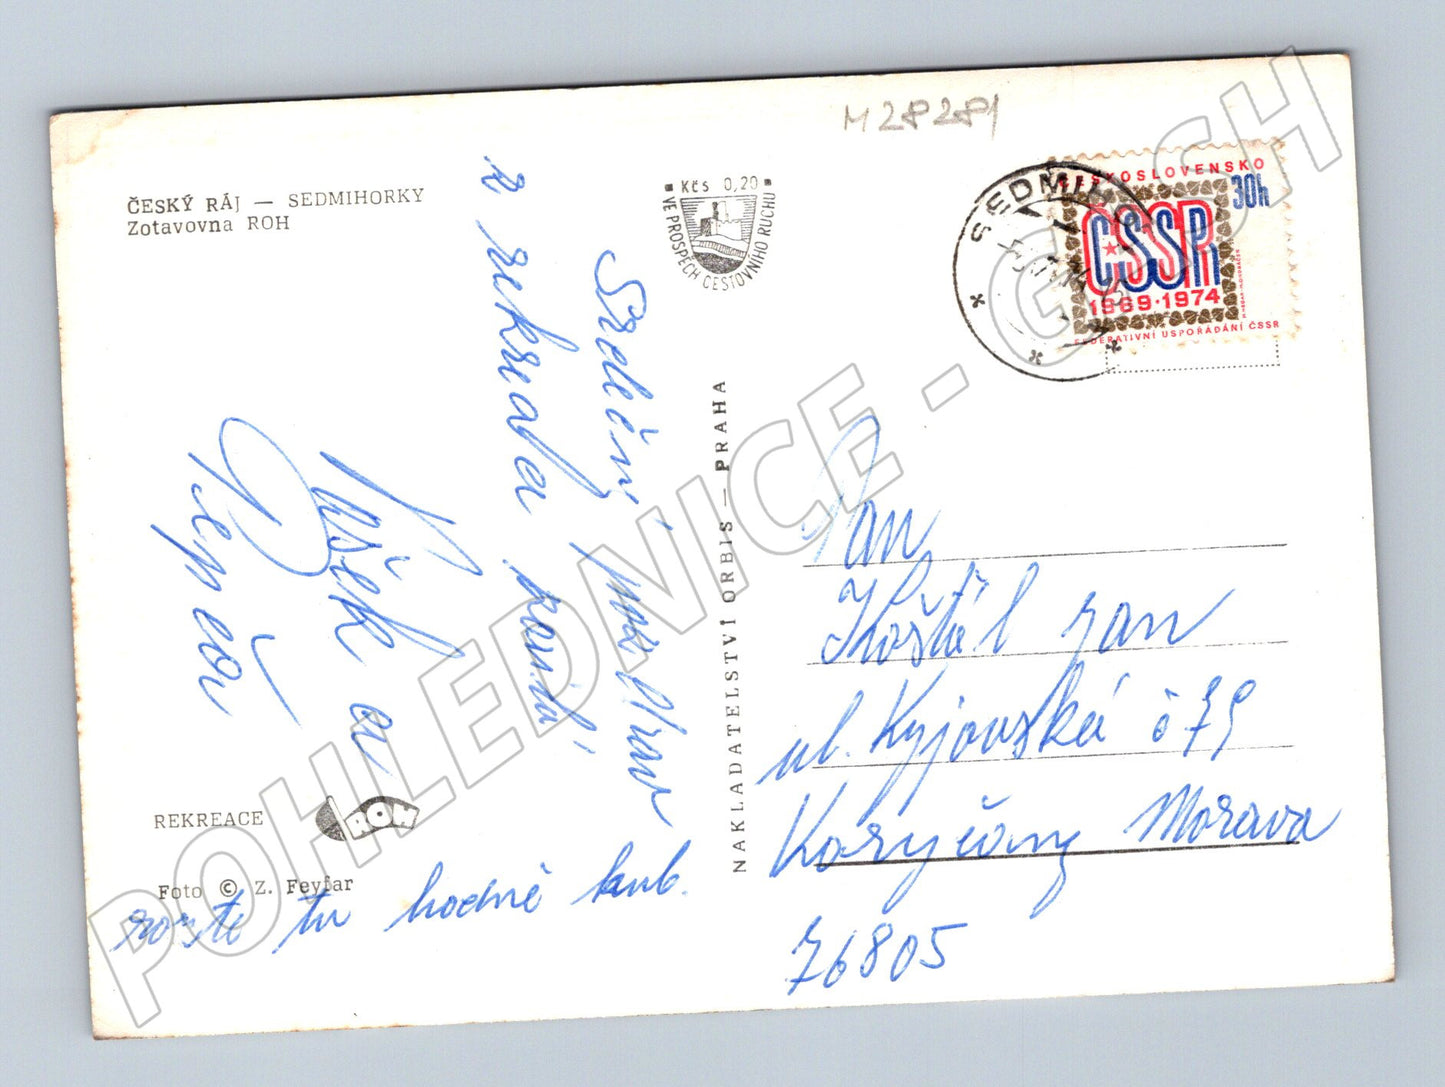 M28281
ČESKÝ RÁJ — SEDMIHORKY
Zotavovna ROH
Kčs 0,20
VE PROSPĚCH CESTOVNÍHO RUCHU
SEDMIHORKY
ČESKOSLOVENSKO
30h
ČSSR
1969·1974
FEDERATIVNÍ USPOŘÁDÁNÍ ČSSR
Srdečný pozdrav
z rekreace posílá
Vašek a
Pepa
roste tu hodně hub.
REKREACE
ROH
Foto © Z. Feyfar
NAKLADATELSTVÍ ORBIS — PRAHA
Pan
Košťál Jan
ul. Kyjovská č 79
Koryčany Morava
76805
POHLEDNICE - GMCH